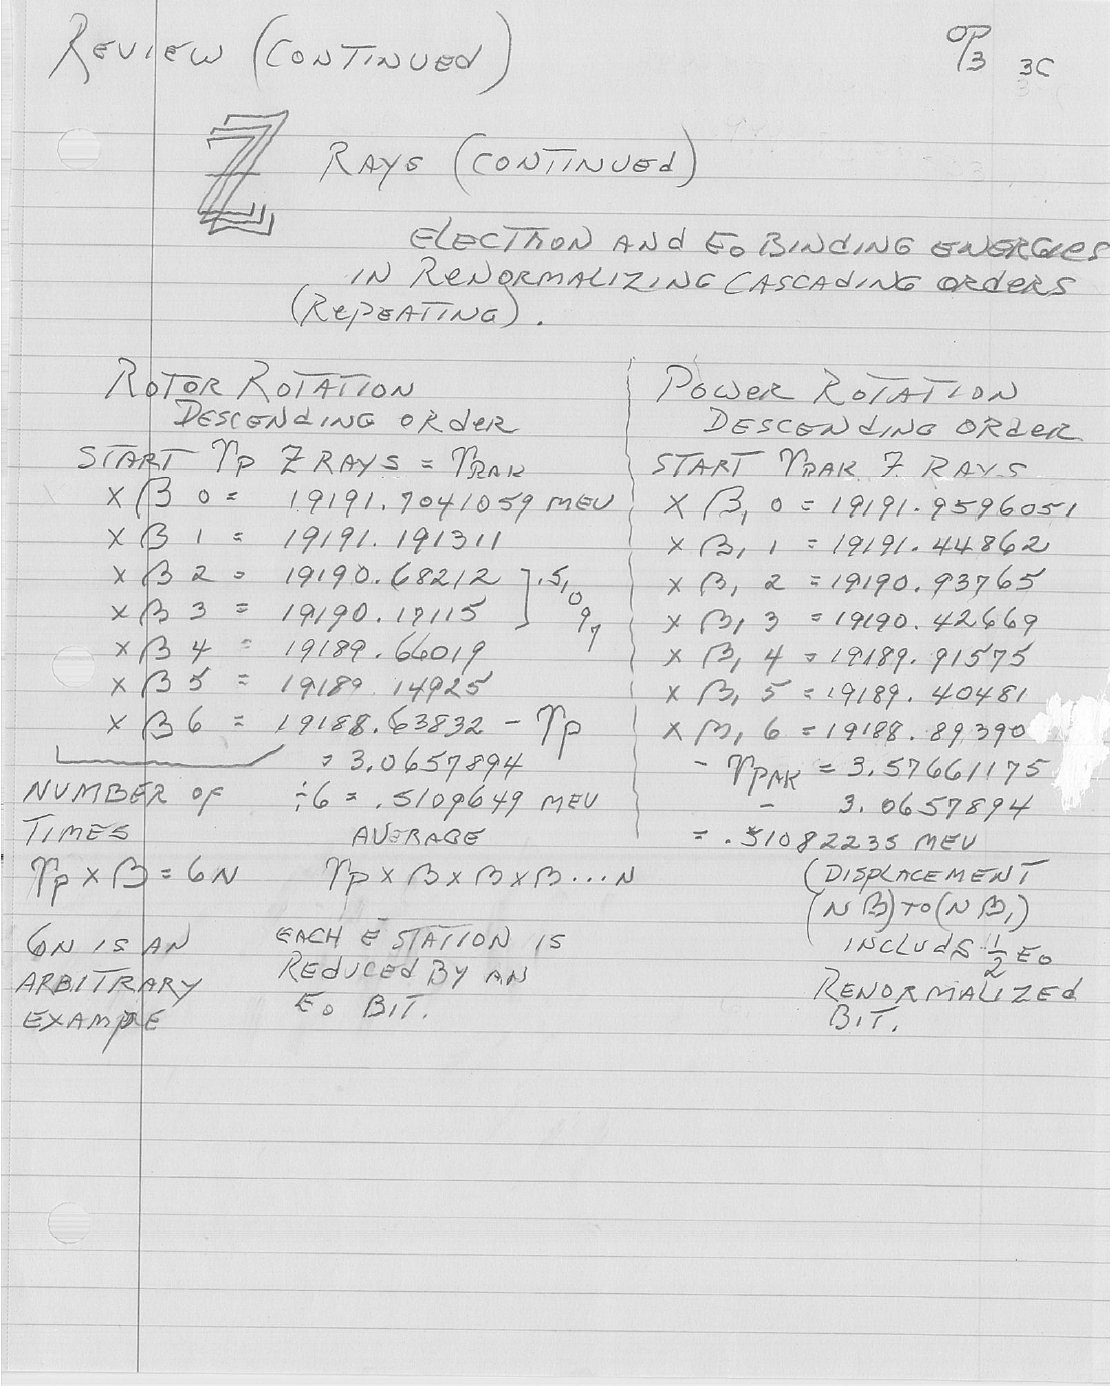 REVIEW (CONTINUED)
OP/3 3C
Z RAYS (CONTINUED)
ELECTRON AND E₀ BINDING ENERGIES
IN RENORMALIZING CASCADING ORDERS
(REPEATING).
ROTOR ROTATION
DESCENDING ORDER
START γP Z RAYS = γPAK
X β 0 = 19191.7041059 MEV
X β 1 = 19191.191311
X β 2 = 19190.68212 ] .51097
X β 3 = 19190.17115
X β 4 = 19189.66019
X β 5 = 19189.14925
X β 6 = 19188.63832 - γP
= 3.0657894
÷6 = .5109649 MEV
AVERAGE
NUMBER OF
TIMES
γP X β = 6N
γP X β X β X β ... N
6N IS AN
ARBITRARY
EXAMPLE
EACH E STATION IS
REDUCED BY AN
E₀ BIT.
POWER ROTATION
DESCENDING ORDER
START γPAK Z RAYS
X β₁ 0 = 19191.9596051
X β₁ 1 = 19191.44862
X β₁ 2 = 19190.93765
X β₁ 3 = 19190.42669
X β₁ 4 = 19189.91575
X β₁ 5 = 19189.40481
X β₁ 6 = 19188.89390
- γPAK = 3.57661175
- 3.0657894
= .51082235 MEV
(DISPLACEMENT
(N β) TO (N β₁)
INCLUDS ½ E₀
RENORMALIZED
BIT.